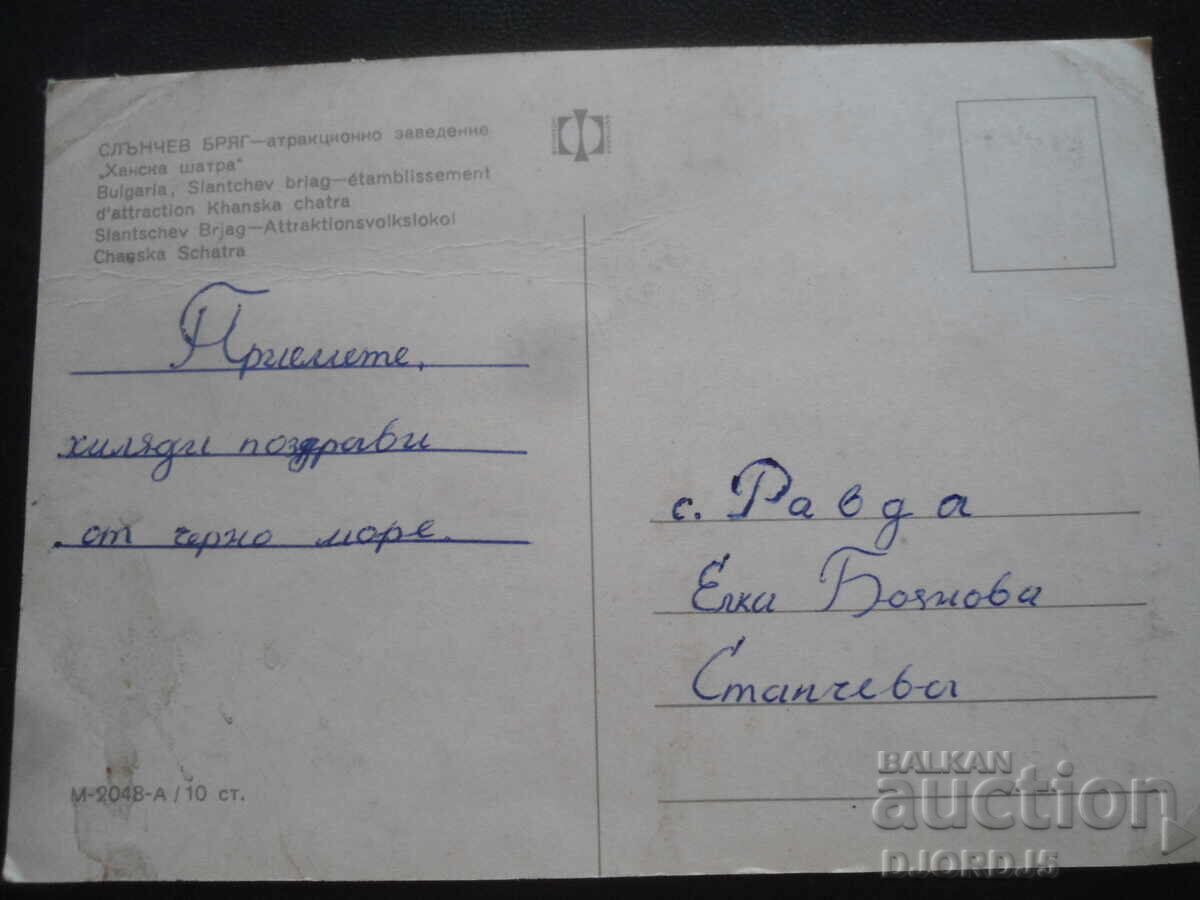 СЛЪНЧЕВ БРЯГ—атракционно заведение
„Ханска шатра“
Bulgaria, Slantchev briag—étamblissement
d'attraction Khanska chatra
Slantschev Brjag—Attraktionsvolkslokol
Chanska Schatra
Приемете,
хиляди поздрави
от черно море.
М-2048-А / 10 ст.
с. Равда
Елка Боянова
Станчева
BALKAN
auction
DJORDJ5